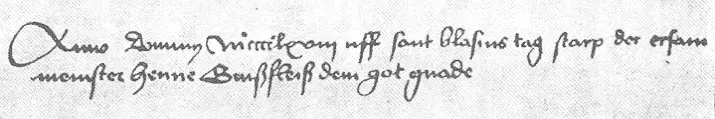 Anno Domini Mcccclxviii uff sant blasius tag starp der ersam
meinster henne Ginßfleiß dem got gnade